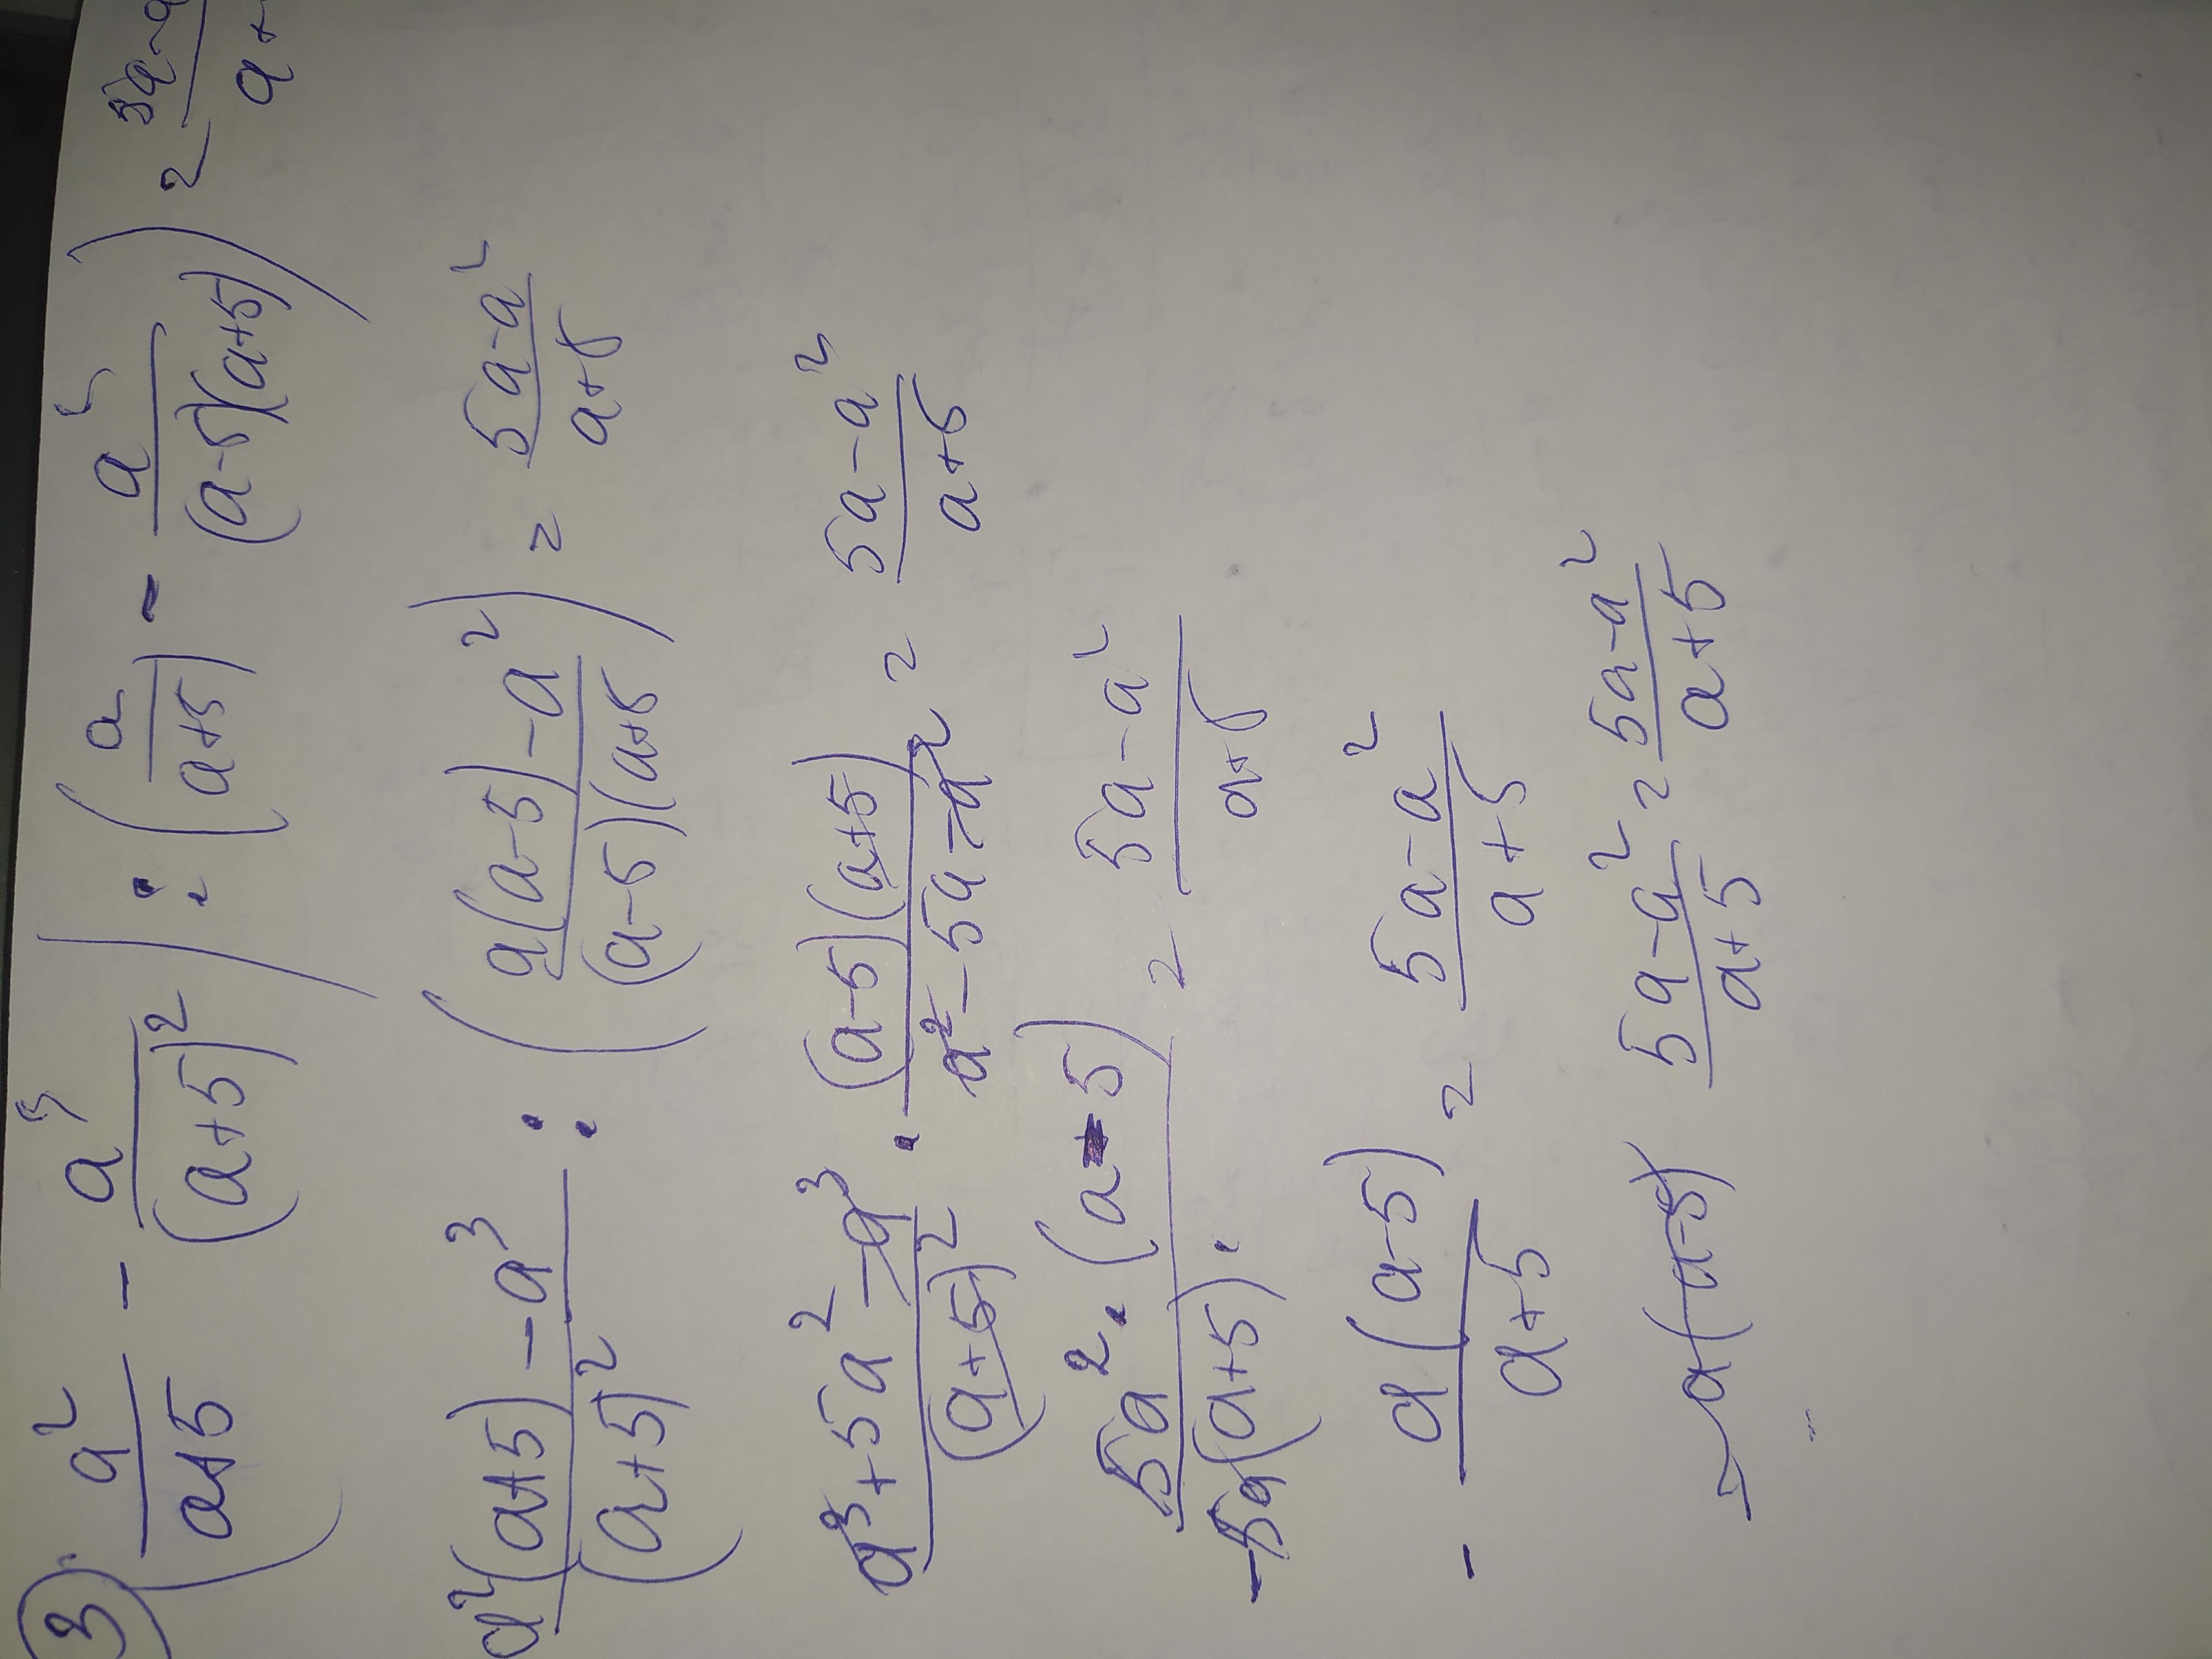 3) (a²/(a+5) - a³/(a+5)²) : (a/(a+5) - a²/((a-5)(a+5))) = (5a-a²)/(a+
(a²(a+5) - a³)/(a+5)² : (a(a-5) - a²)/((a-5)(a+5) ) = (5a-a²)/(a+5)
(a³+5a²-a³)/(a+5)² · ((a-5)(a+5))/(a²-5a-a²) = (5a-a²)/(a+5)
(5a²·(a-5))/(-5a(a+5)· = (5a-a²)/(a+5)
- a(a-5)/(a+5) = (5a-a²)/(a+5)
(5a-a²)/(a+5) = (5a-a²)/(a+5)